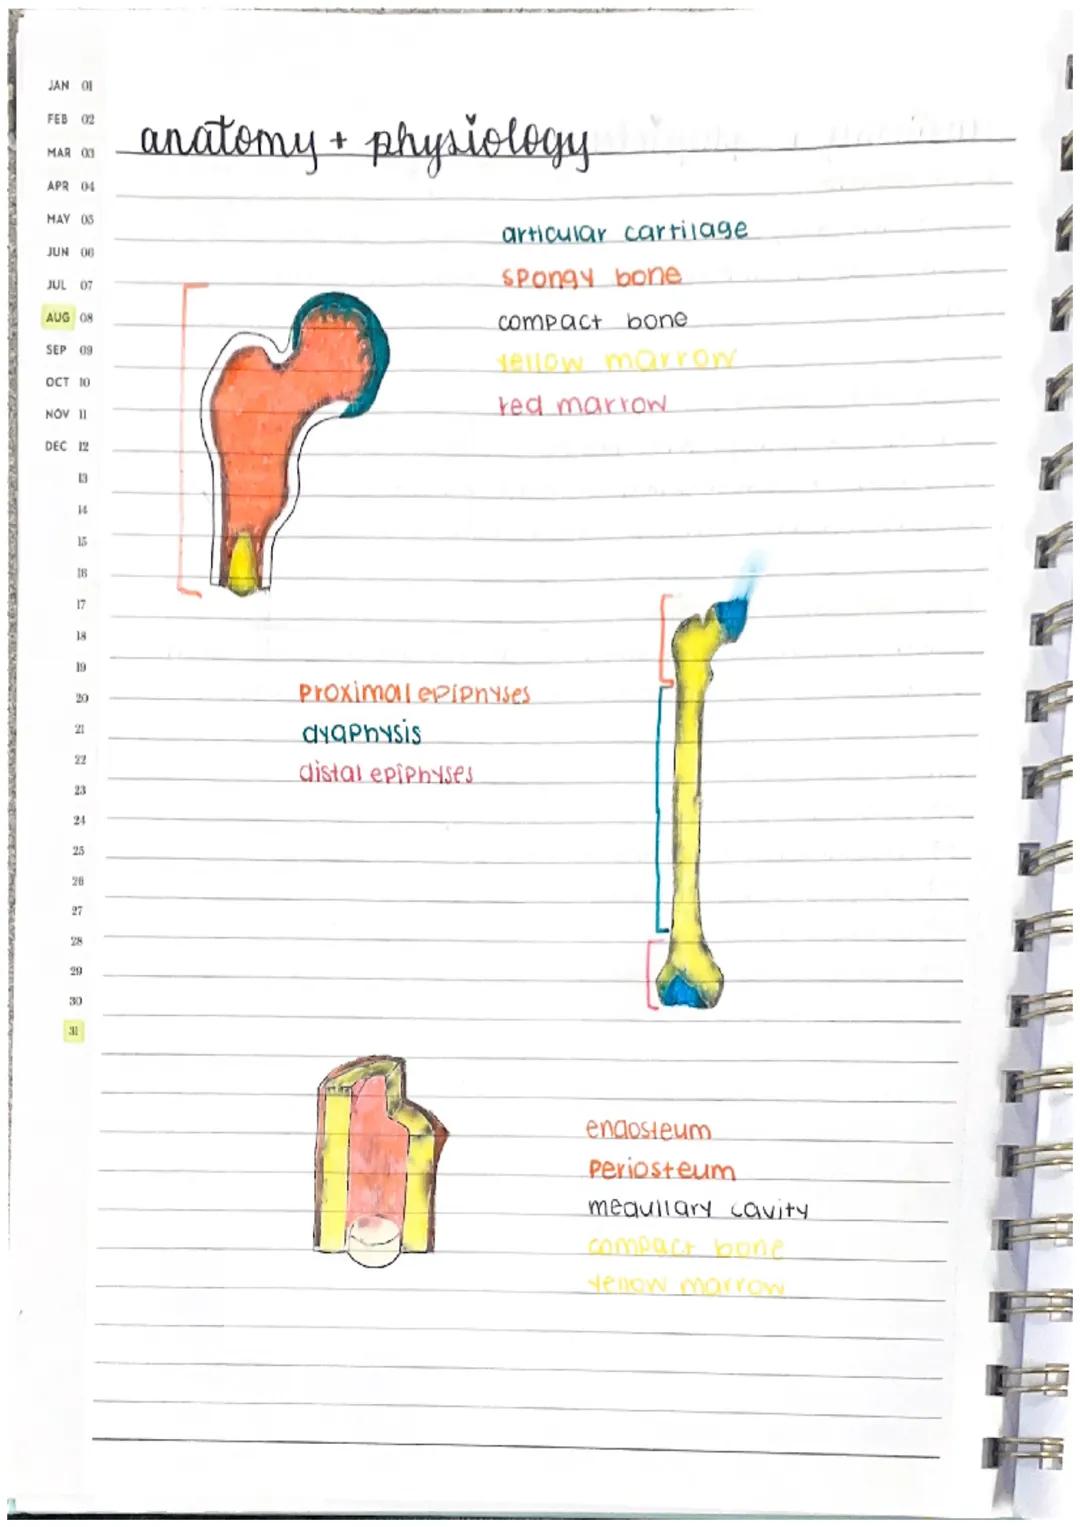 JAN 01
FEB 02
MAR 03
APR 04
MAY 05
JUN 06
JUL 07
AUG 08
SEP 09
OCT 10
NOV 11
DEC 12
13
14
15
16
17
18
19
20
21
22
23
24
25
26
27
28
29
30
31
anatomy + physiology
articular cartilage
spongy bone
compact bone
yellow marrow
red marrow
proximal epiphyses
dyaphysis
distal epiphyses
endosteum
periosteum
medullary cavity
compact bone
yellow marrow